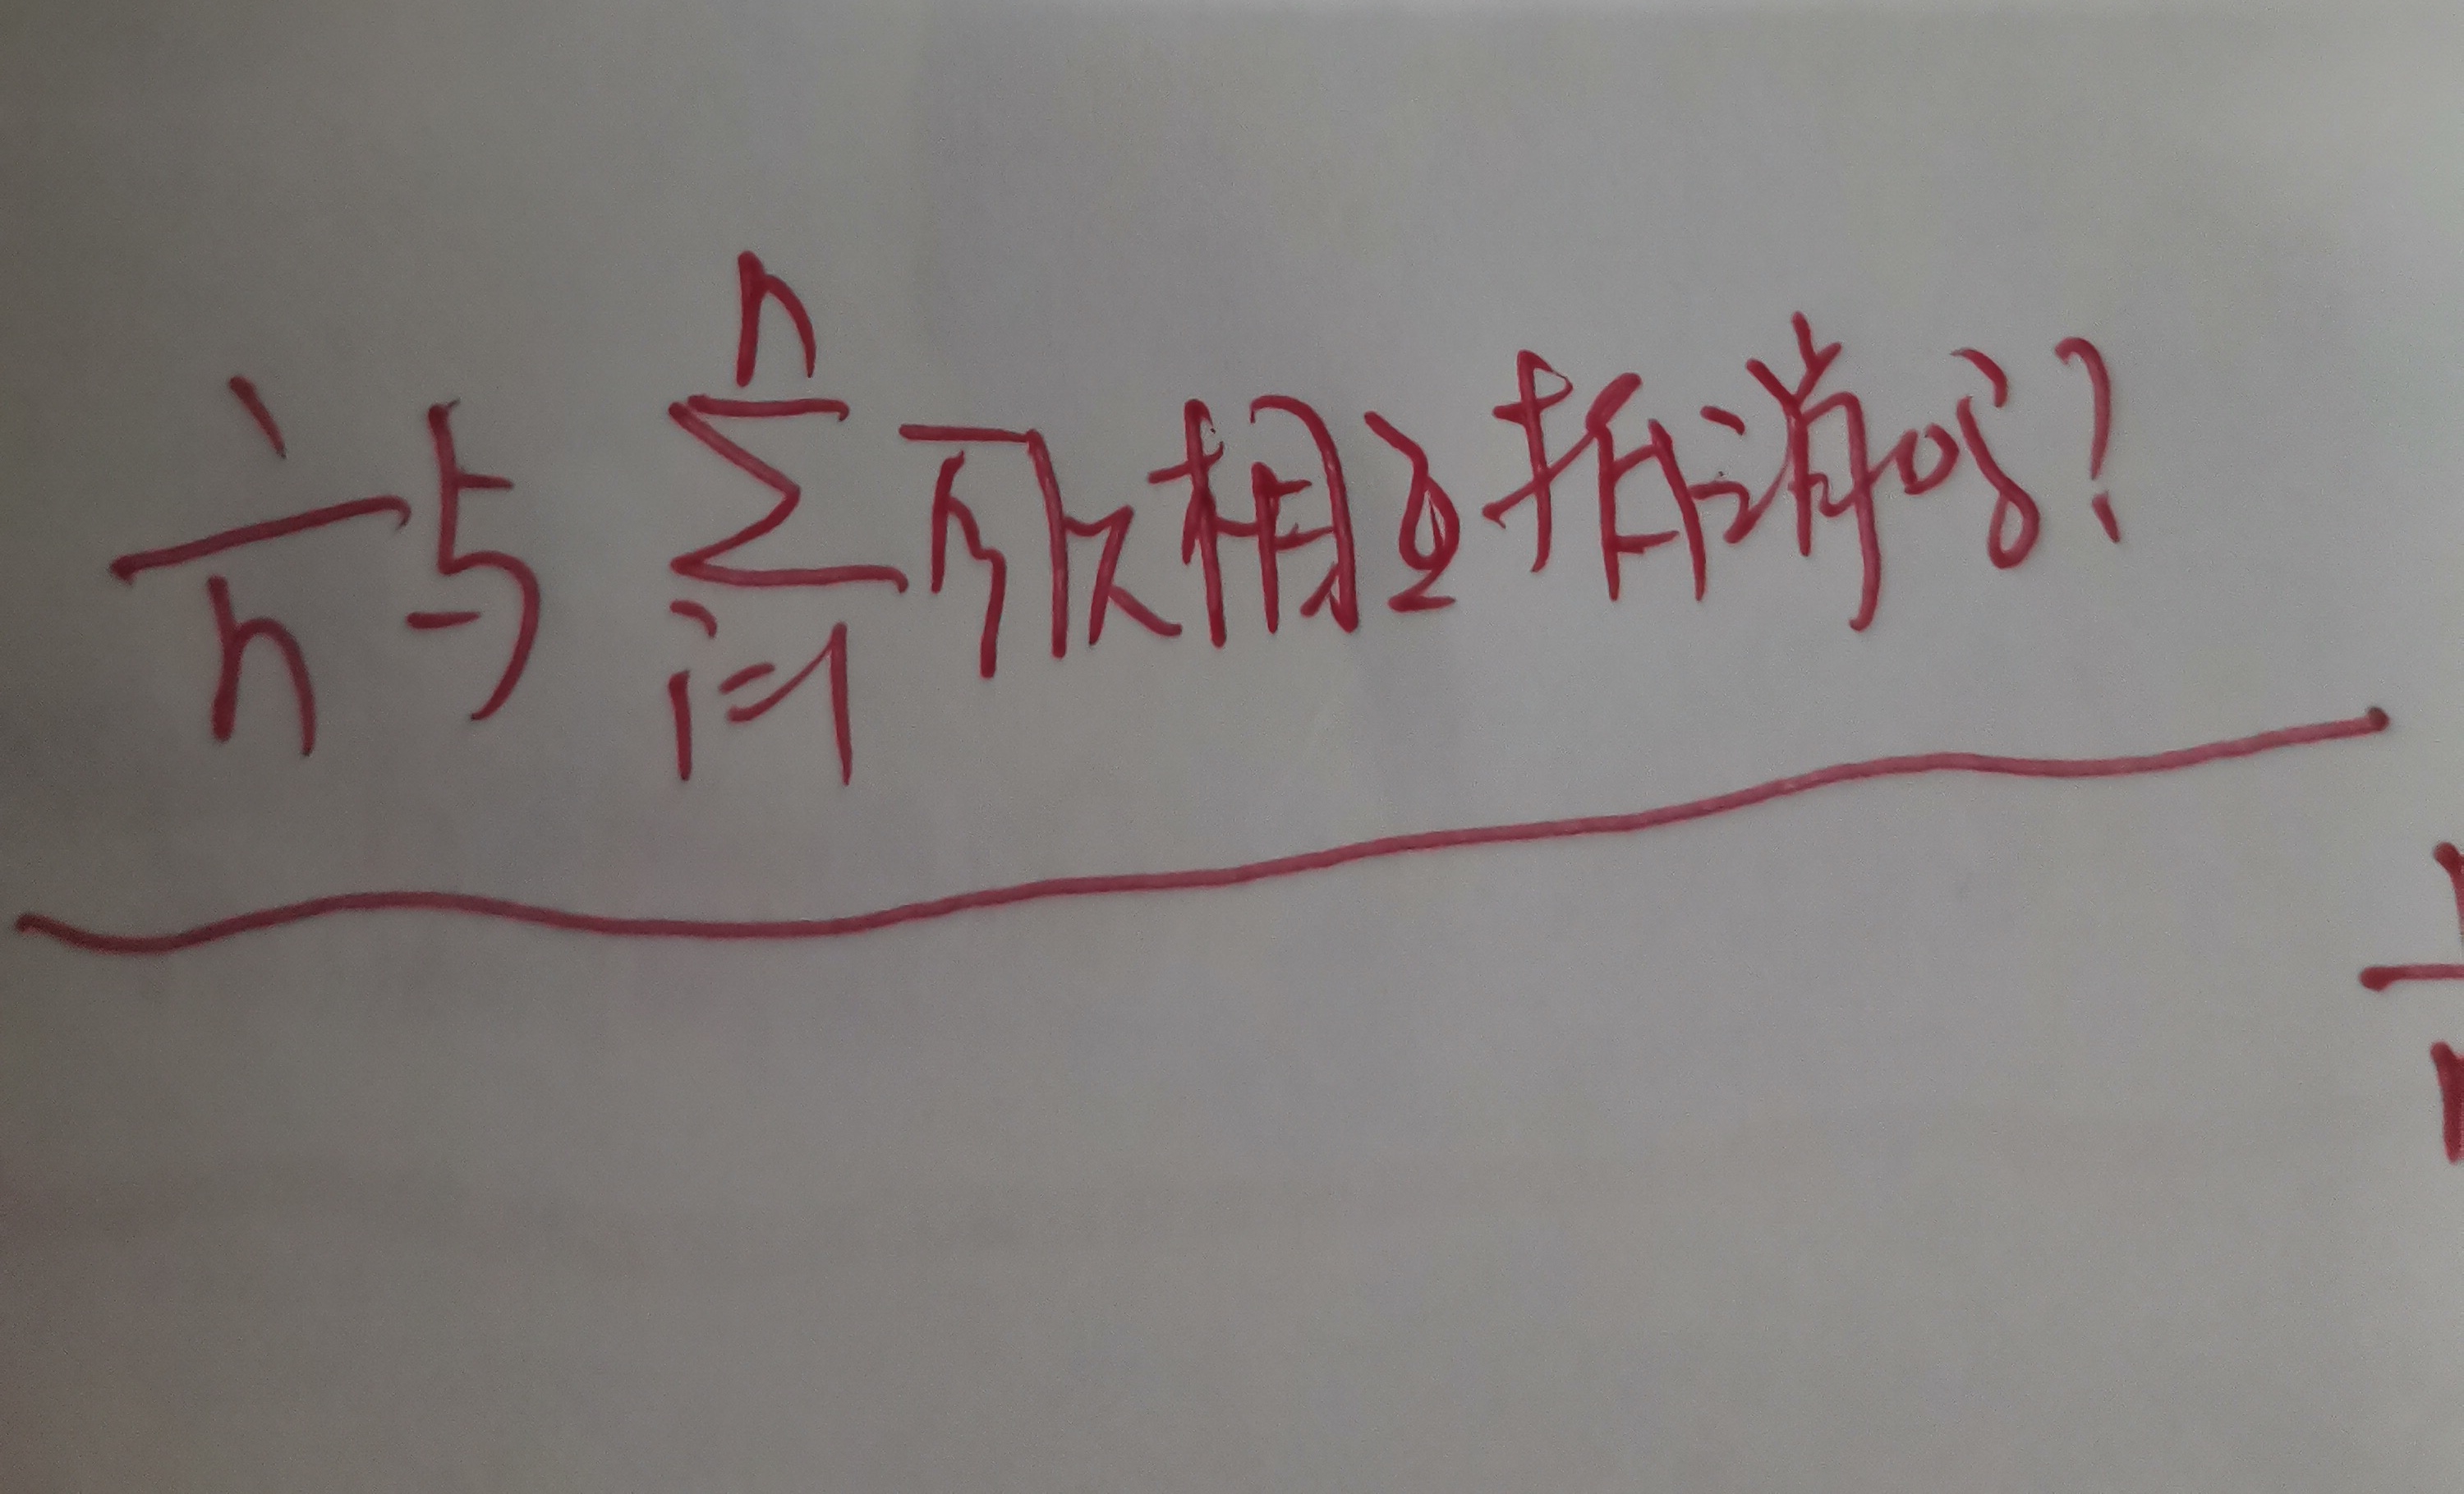 1/n与 n∑i=1 可以相互抵消吗?